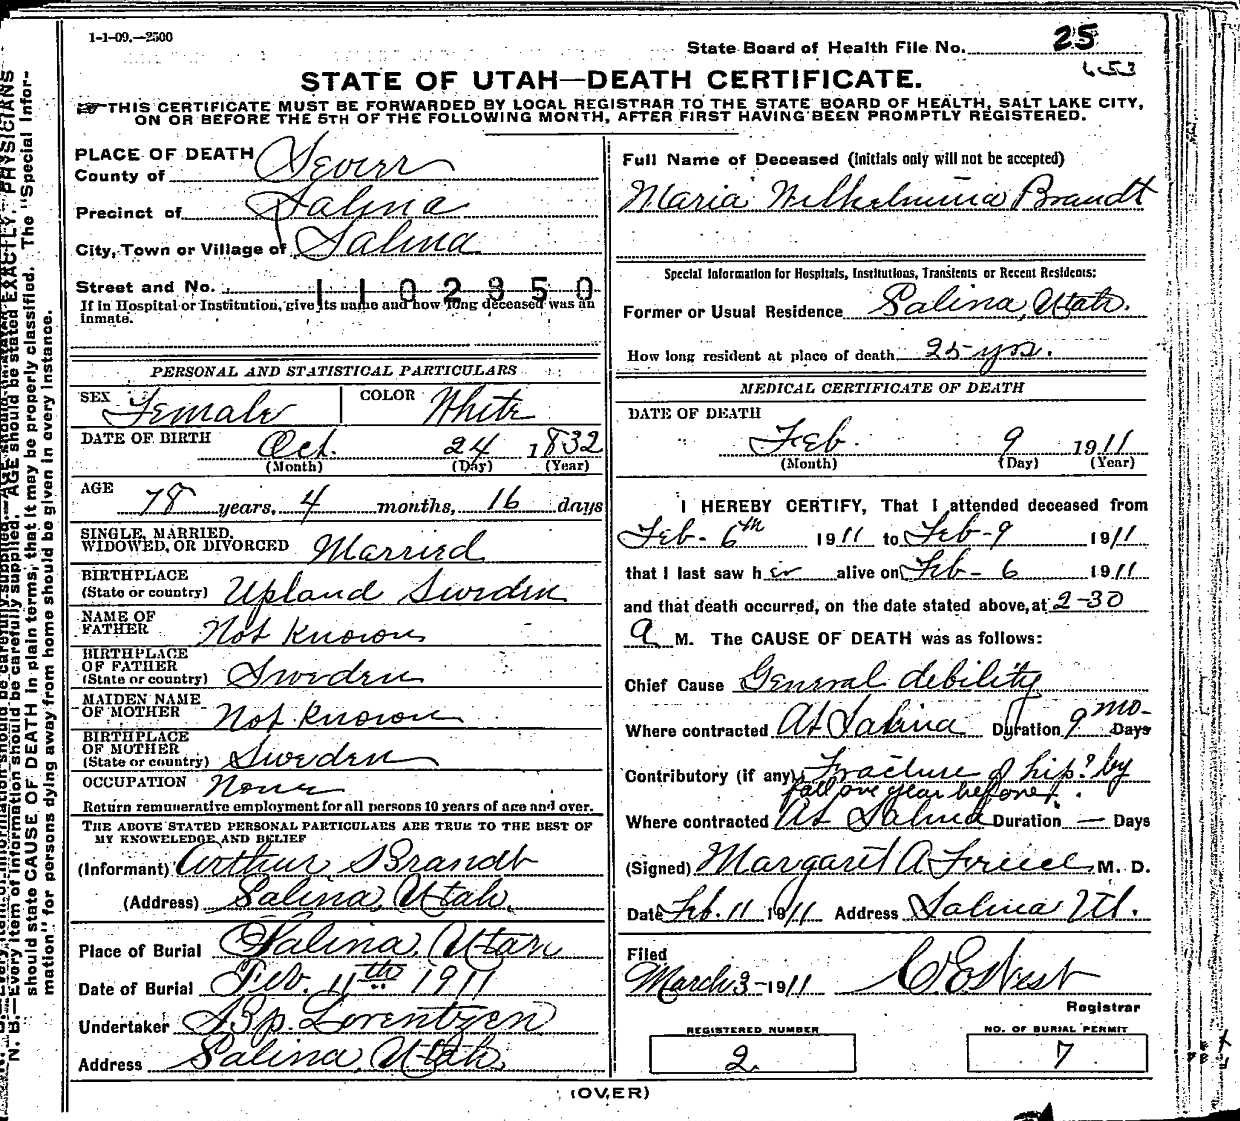 1-1-09.—2500
State Board of Health File No. 25
653
STATE OF UTAH—DEATH CERTIFICATE.
THIS CERTIFICATE MUST BE FORWARDED BY LOCAL REGISTRAR TO THE STATE BOARD OF HEALTH, SALT LAKE CITY,
ON OR BEFORE THE 5TH OF THE FOLLOWING MONTH, AFTER FIRST HAVING BEEN PROMPTLY REGISTERED.
PLACE OF DEATH
County of Sevier
Precinct of Salina
City, Town or Village of Salina
Street and No.
1102350
If in Hospital or Institution, give its name and how long deceased was an
inmate.
PERSONAL AND STATISTICAL PARTICULARS
SEX Female COLOR White
DATE OF BIRTH Oct. 24 1832
(Month) (Day) (Year)
AGE 78 years, 4 months, 16 days
SINGLE, MARRIED,
WIDOWED, OR DIVORCED Married
BIRTHPLACE
(State or country) Upland Sweden
NAME OF
FATHER Not Known
BIRTHPLACE
OF FATHER
(State or country) Sweden
MAIDEN NAME
OF MOTHER Not Known
BIRTHPLACE
OF MOTHER
(State or country) Sweden
OCCUPATION None
Return remunerative employment for all persons 10 years of age and over.
THE ABOVE STATED PERSONAL PARTICULARS ARE TRUE TO THE BEST OF
MY KNOWELEDGE AND BELIEF
(Informant) Arthur Brandt
(Address) Salina, Utah.
Place of Burial Salina, Utah
Date of Burial Feb. 11th 1911
Undertaker Bp. Lorentzen
Address Salina, Utah.
Full Name of Deceased (Initials only will not be accepted)
Maria Wilhelmina Brandt
Special Information for Hospitals, Institutions, Transients or Recent Residents:
Former or Usual Residence Salina, Utah.
How long resident at place of death 25 yrs.
MEDICAL CERTIFICATE OF DEATH
DATE OF DEATH
Feb. 9 1911
(Month) (Day) (Year)
I HEREBY CERTIFY, That I attended deceased from
Feb- 6th 1911 to Feb-9 1911
that I last saw her alive on Feb-6 1911
and that death occurred, on the date stated above, at 2-30
a M. The CAUSE OF DEATH was as follows:
Chief Cause General debility
Where contracted At Salina Duration 9 mo- Days
Contributory (if any) Fracture of hip? by
fall one year before.
Where contracted At Salina Duration — Days
(Signed) Margaret A M. D.
Date Feb. 11 1911 Address Salina Ut.
Filed
March 3-1911 C E West
Registrar
REGISTERED NUMBER
2.
NO. OF BURIAL PERMIT
7
(OVER)
N. B.—Every item of information should be carefully supplied. AGE should be stated EXACTLY. PHYSICIANS
should state CAUSE OF DEATH in plain terms, that it may be properly classified. The "Special Infor-
mation" for persons dying away from home should be given in every instance.